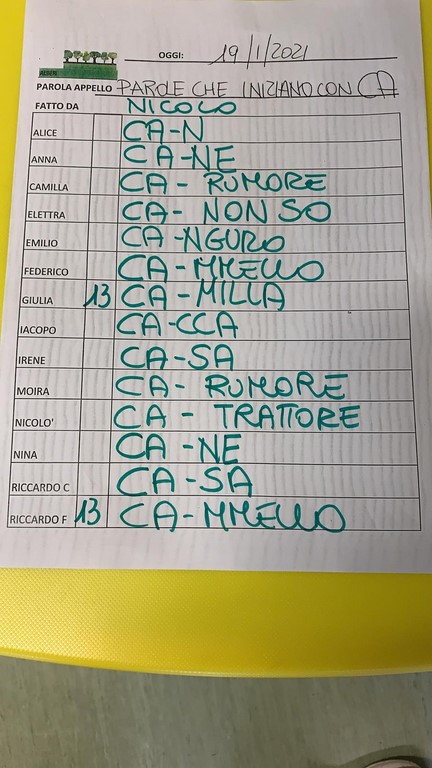 OGGI: 19/1/2021
ALBERI
PAROLA APPELLO PAROLE CHE INIZIANO CON CA
FATTO DA NICOLO
ALICE CA-N
ANNA CA-NE
CAMILLA CA- RUMORE
ELETTRA CA- NON SO
EMILIO CA-NGURO
FEDERICO CA-MMELLO
GIULIA 13 CA-MILLA
IACOPO CA-CCA
IRENE CA-SA
MOIRA CA- RUMORE
NICOLO' CA - TRATTORE
NINA CA-NE
RICCARDO C CA-SA
RICCARDO F 13 CA-MMELLO